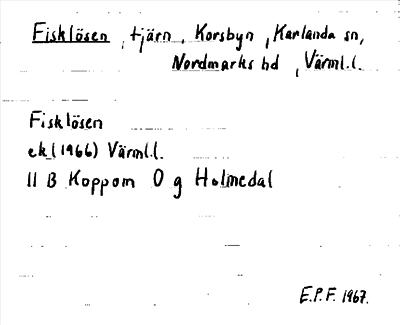 Fisklösen, tjärn, Korsbyn, Karlanda sn,
Nordmarks hd, Värml.l.
Fisklösen
ek (1966) Värml.l.
11 B Koppom 0 g Holmedal
E.P.F. 1967.